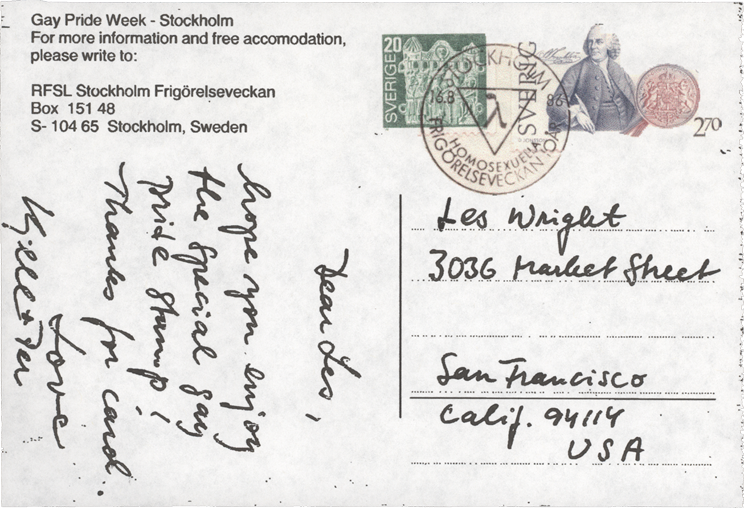 Gay Pride Week - Stockholm
For more information and free accomodation,
please write to:
RFSL Stockholm Frigörelseveckan
Box 151 48
S- 104 65 Stockholm, Sweden
SVERIGE 20
SVERIGE
2.70
STOCKHOLM
16.8
86
λ
HOMOSEXUELLA
FRIGÖRELSEVECKAN
Dear Les,
hope you enjoy
the special gay
pride stamp!
Thanks for card.
Love
Kjell + Per
Les Wright
3036 Market Street
San Francisco
Calif. 94114
USA